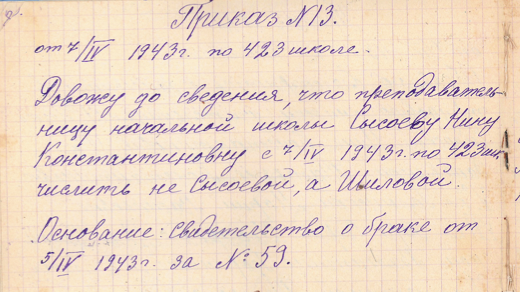 Приказ №13.
от 7/IV 1943г. по 423 школе.
Довожу до сведения, что преподаватель-
ницу начальной школы Сысоеву Нину
Константиновну с 7/IV 1943г. по 423 шк.
числить не Сысоевой, а Шиловой.
Основание: свидетельство о браке от
5/IV 1943г. за №59.